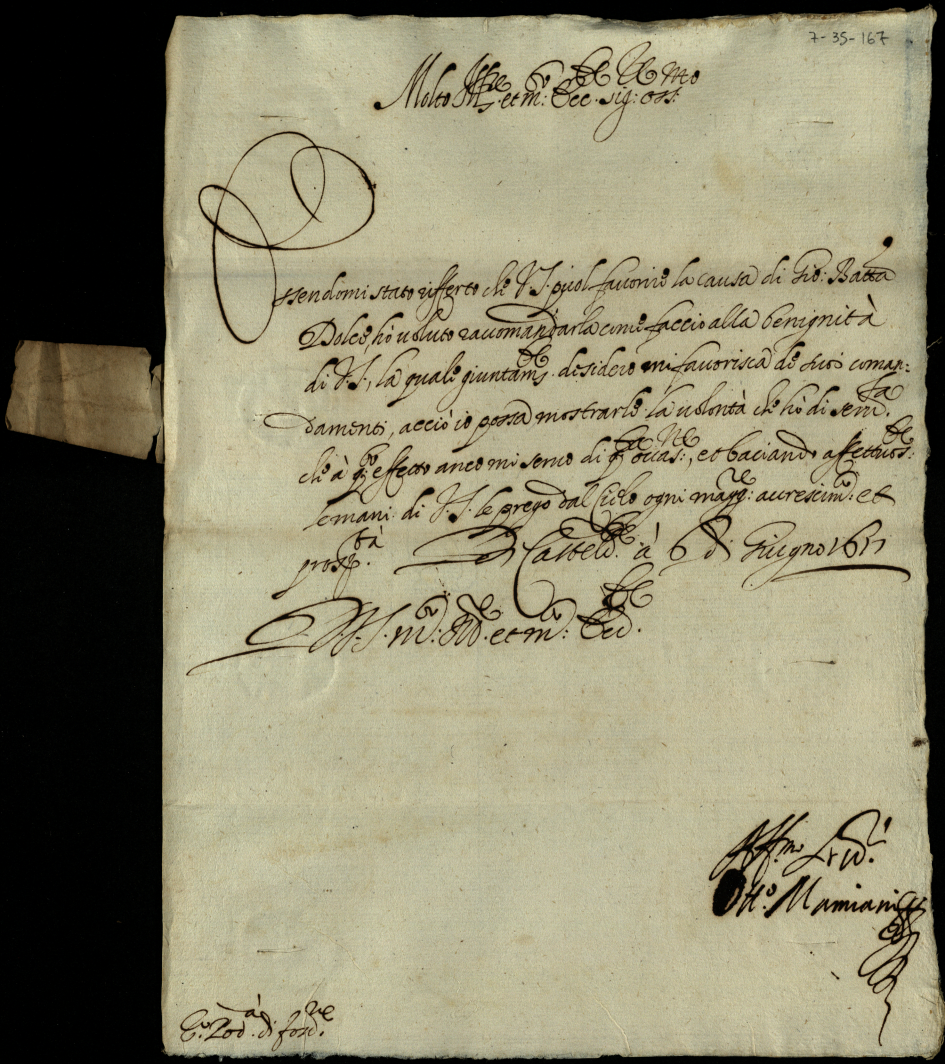 7-35-167
Molto Ill.re et m.to Ecc.te sig.re oss.mo
Essendomi stato rifferto che V.S. puol favorire la causa di Gio: Batta
Dolce, hò voluto raccomandarla come faccio alla benignità
di V.S., la quale giuntam.te desidero mi favorisca de suoi coman-
damenti, acciò io possa mostrarle la volontà che hò di ser.la
che à q.to effetto anco mi servo di q.ta occas.ne, et baciando affettuos.te
le mani di V.S. le prego dal Cielo ogni magg.re accrescim.to et
prosp.tà Di Casteld.te à 6 di Giugno
Di V.S. m.to Ill.re et m.to Ecc.te
Aff.mo Ser.re
Ott.o Mamiani